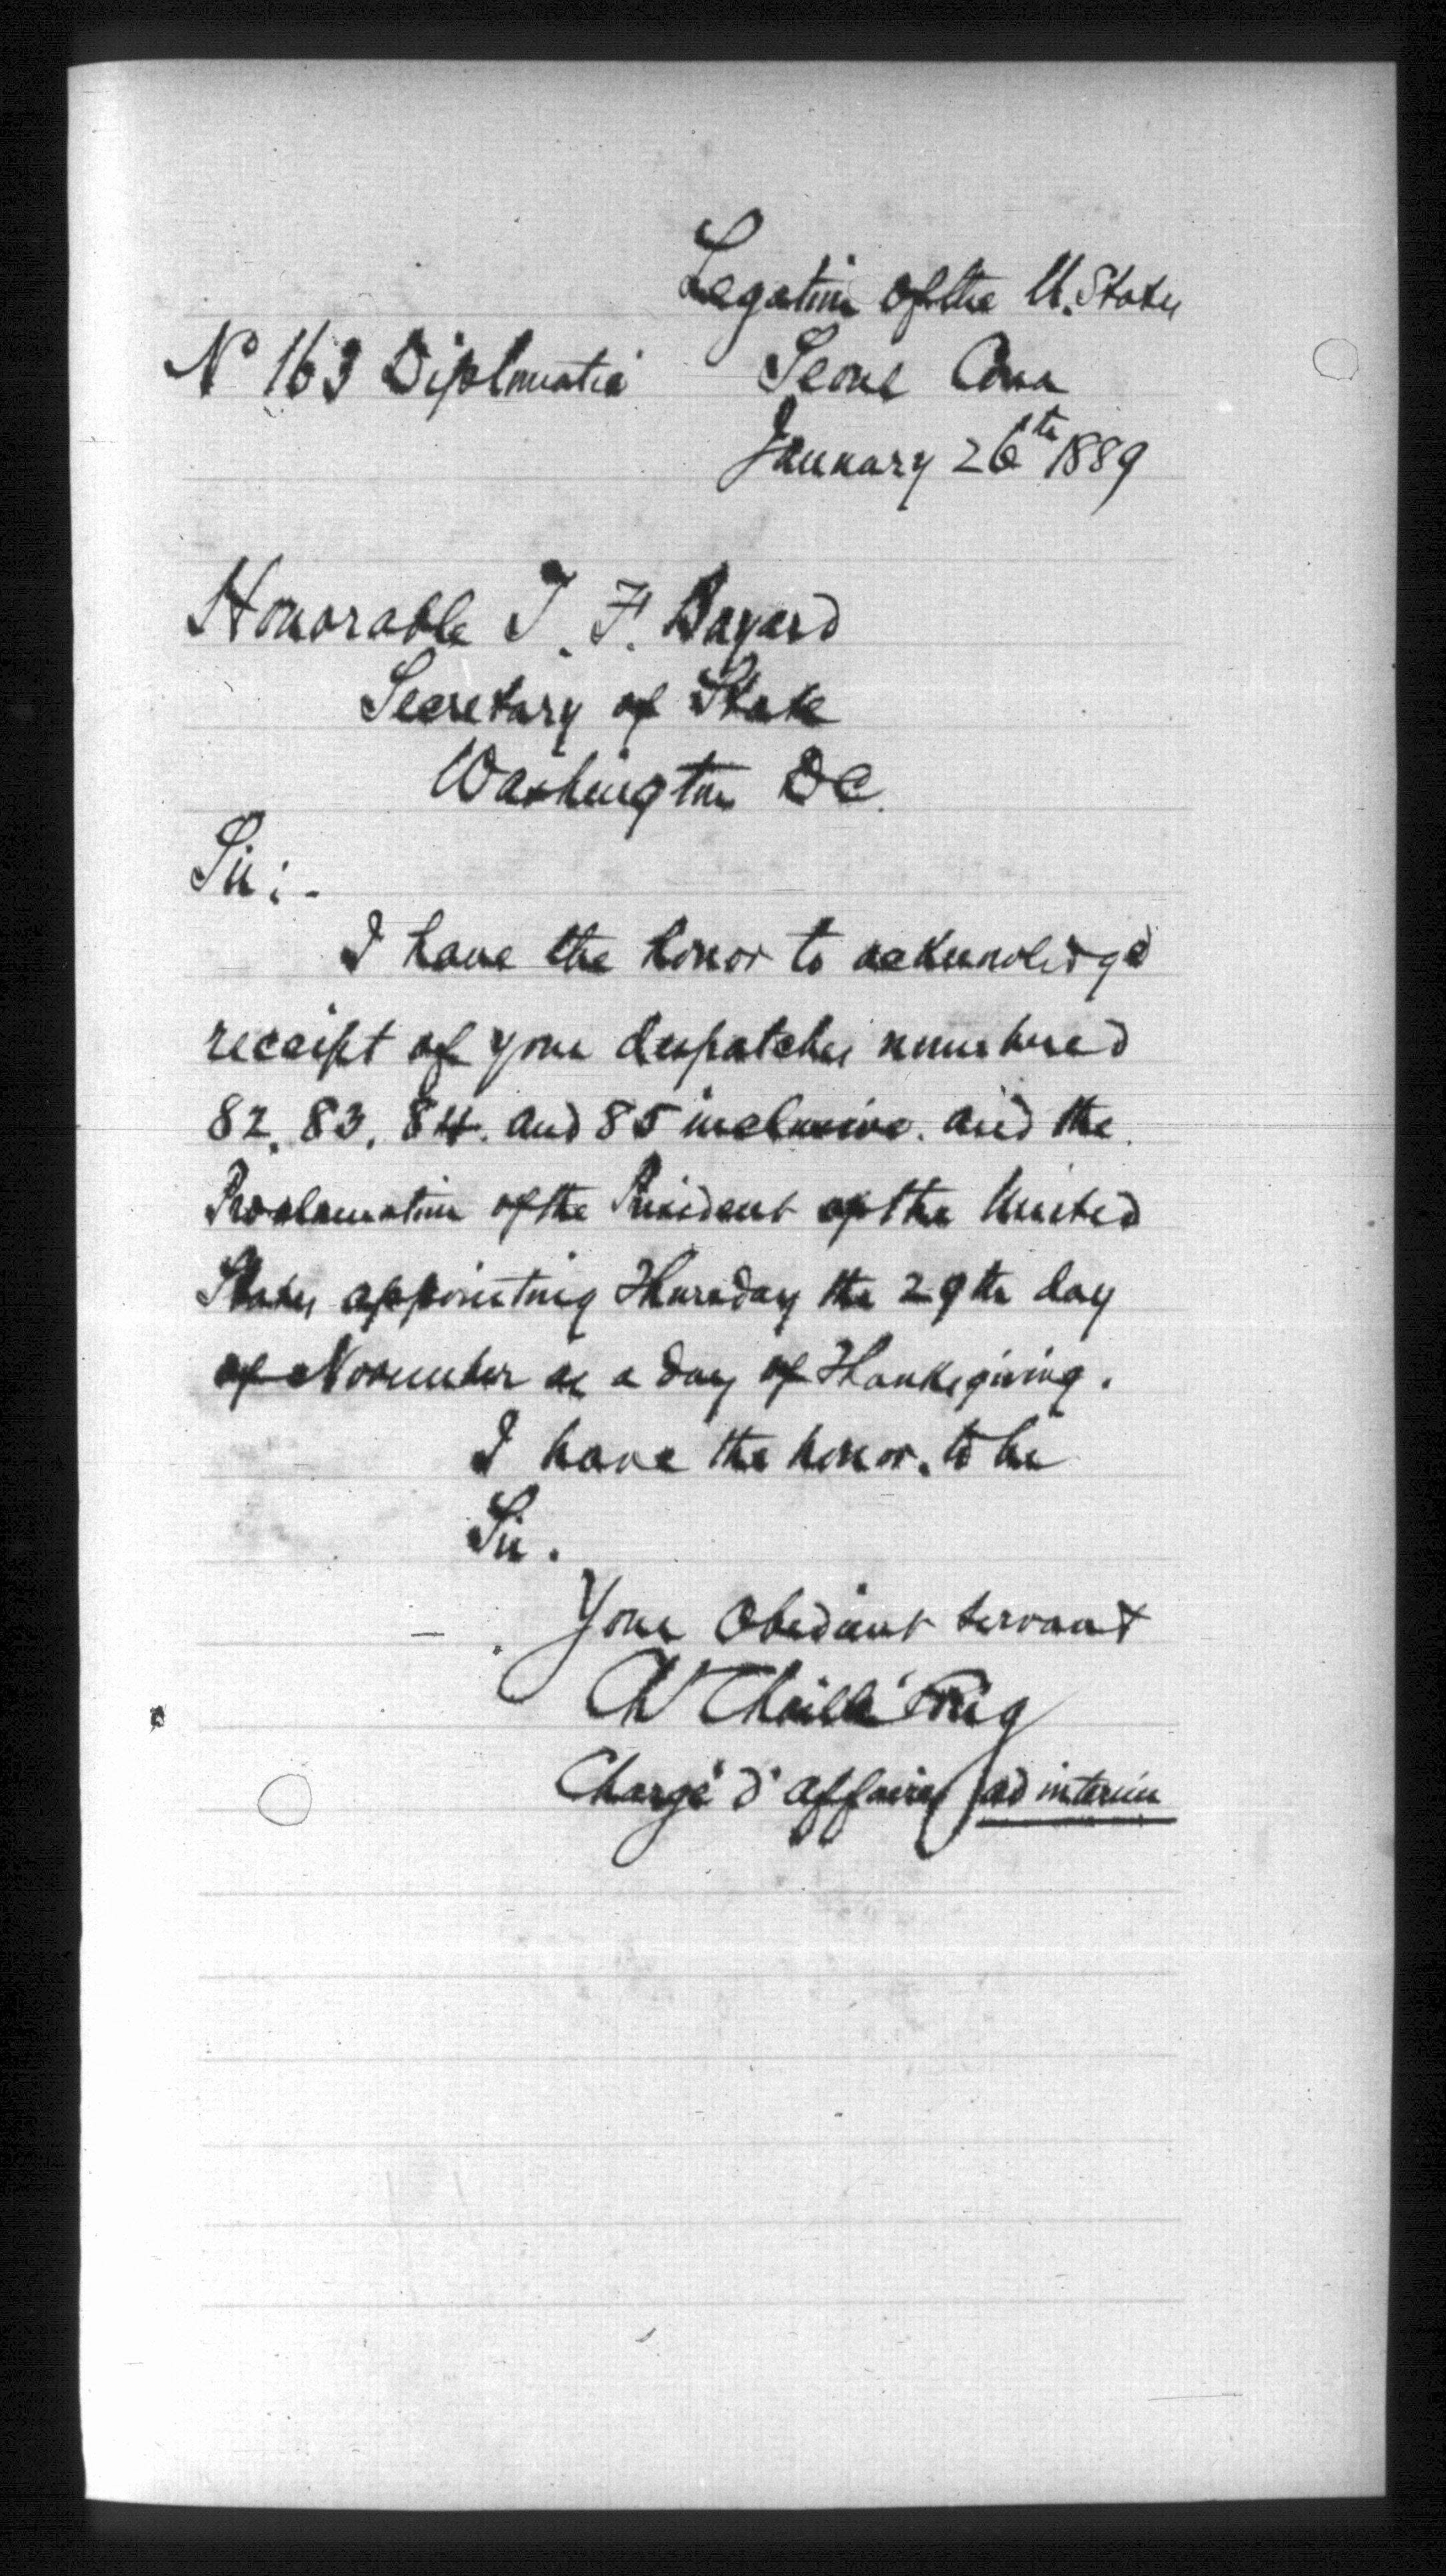 Legation of the U. States
No 163 Diplomatic Seoul Corea
January 26th 1889
Honorable T. F. Bayard
Secretary of State
Washington DC.
Sir:-
I have the honor to acknowledge
receipt of your despatches numbered
82, 83, 84. and 85 inclusive. and the
Proclamation of the President of the United
States appointing Thursday the 29th day
of November as a day of Thanksgiving.
I have the honor. to be
Sir.
Your Obedient servant
Chaillé Long
Chargé d'affaires ad interim